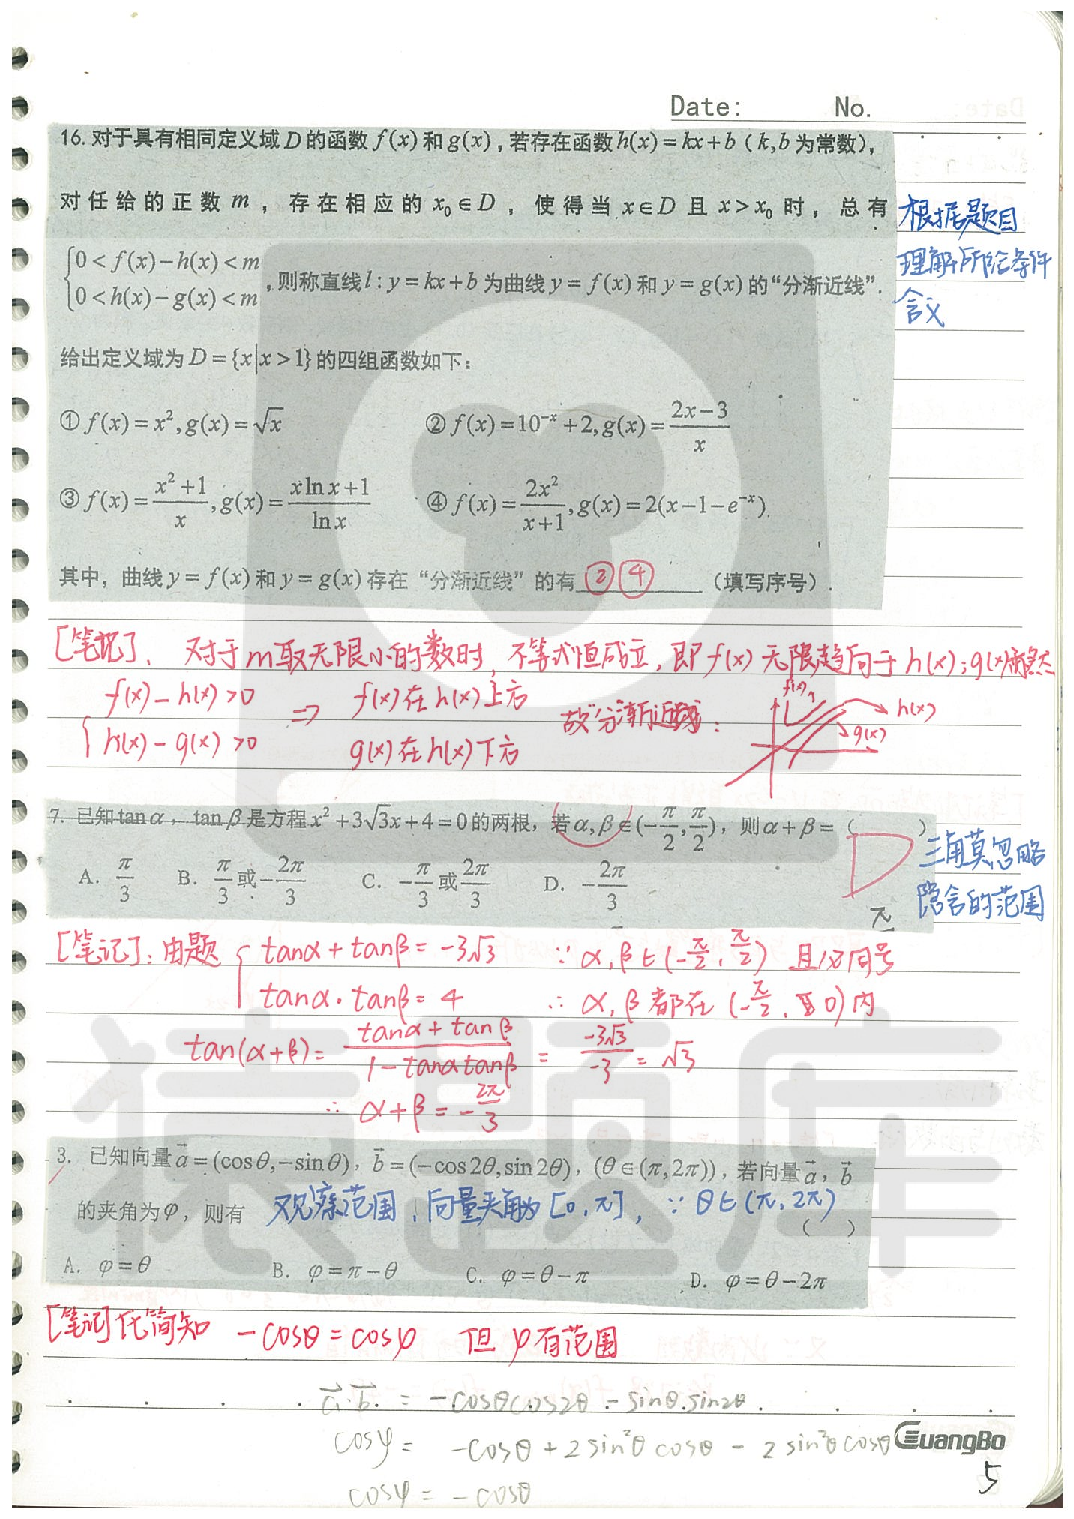 Date:　　No.
16. 对于具有相同定义域 D 的函数 f(x) 和 g(x)，若存在函数 h(x)=kx+b（k,b 为常数），
对任给的正数 m，存在相应的 x₀∈D，使得当 x∈D 且 x>x₀ 时，总有
根据题目
理解所给条件
含义
{0<f(x)−h(x)<m
{0<h(x)−g(x)<m
,则称直线 l: y=kx+b 为曲线 y=f(x) 和 y=g(x) 的“分渐近线”.
给出定义域为 D={x|x>1} 的四组函数如下：
① f(x)=x²,g(x)=√x　② f(x)=10⁻ˣ+2,g(x)=(2x−3)/x
③ f(x)=(x²+1)/x,g(x)=(xlnx+1)/lnx　④ f(x)=2x²/(x+1),g(x)=2(x−1−e⁻ˣ).
其中，曲线 y=f(x) 和 y=g(x) 存在“分渐近线”的有 ②④ （填写序号）.
[笔记]、对于m取无限小的数时，不等式恒成立，即f(x)无限趋向于h(x);g(x)亦然
f(x)−h(x)>0　⇒　f(x)在h(x)上方
h(x)−g(x)>0　g(x)在h(x)下方
故“分渐近线”：
f(x)
h(x)
g(x)
7. 已知tanα，tanβ是方程 x²+3√3x+4=0 的两根，若α,β∈(−π/2,π/2)，则α+β=（　　）
D
A. π/3　B. π/3或−2π/3　C. −π/3或2π/3　D. −2π/3
三角莫忽略
隐含的范围
π
[笔记]：由题 { tanα+tanβ=−3√3　∵ α,β∈(−π/2,π/2) 且必同号
tanα·tanβ=4　∴ α,β都在(−π/2,0)内
tan(α+β)=(tanα+tanβ)/(1−tanαtanβ)=−3√3/−3=√3
∴ α+β=−2π/3
3. 已知向量 a⃗=(cosθ,−sinθ)，b⃗=(−cos2θ,sin2θ)，(θ∈(π,2π))，若向量 a⃗，b⃗
的夹角为φ，则有　观察范围，向量夹角为[0,π]，∵ θ∈(π,2π)
（　　）
A. φ=θ　B. φ=π−θ　C. φ=θ−π　D. φ=θ−2π
[笔记]化简知　−cosθ=cosφ　但φ有范围
a⃗·b⃗=−cosθcos2θ−sinθ.sin2θ
cosφ=−cosθ+2sin²θcosθ−2sin²θcosθ
cosφ=−cosθ
GuangBo
5
猿题库